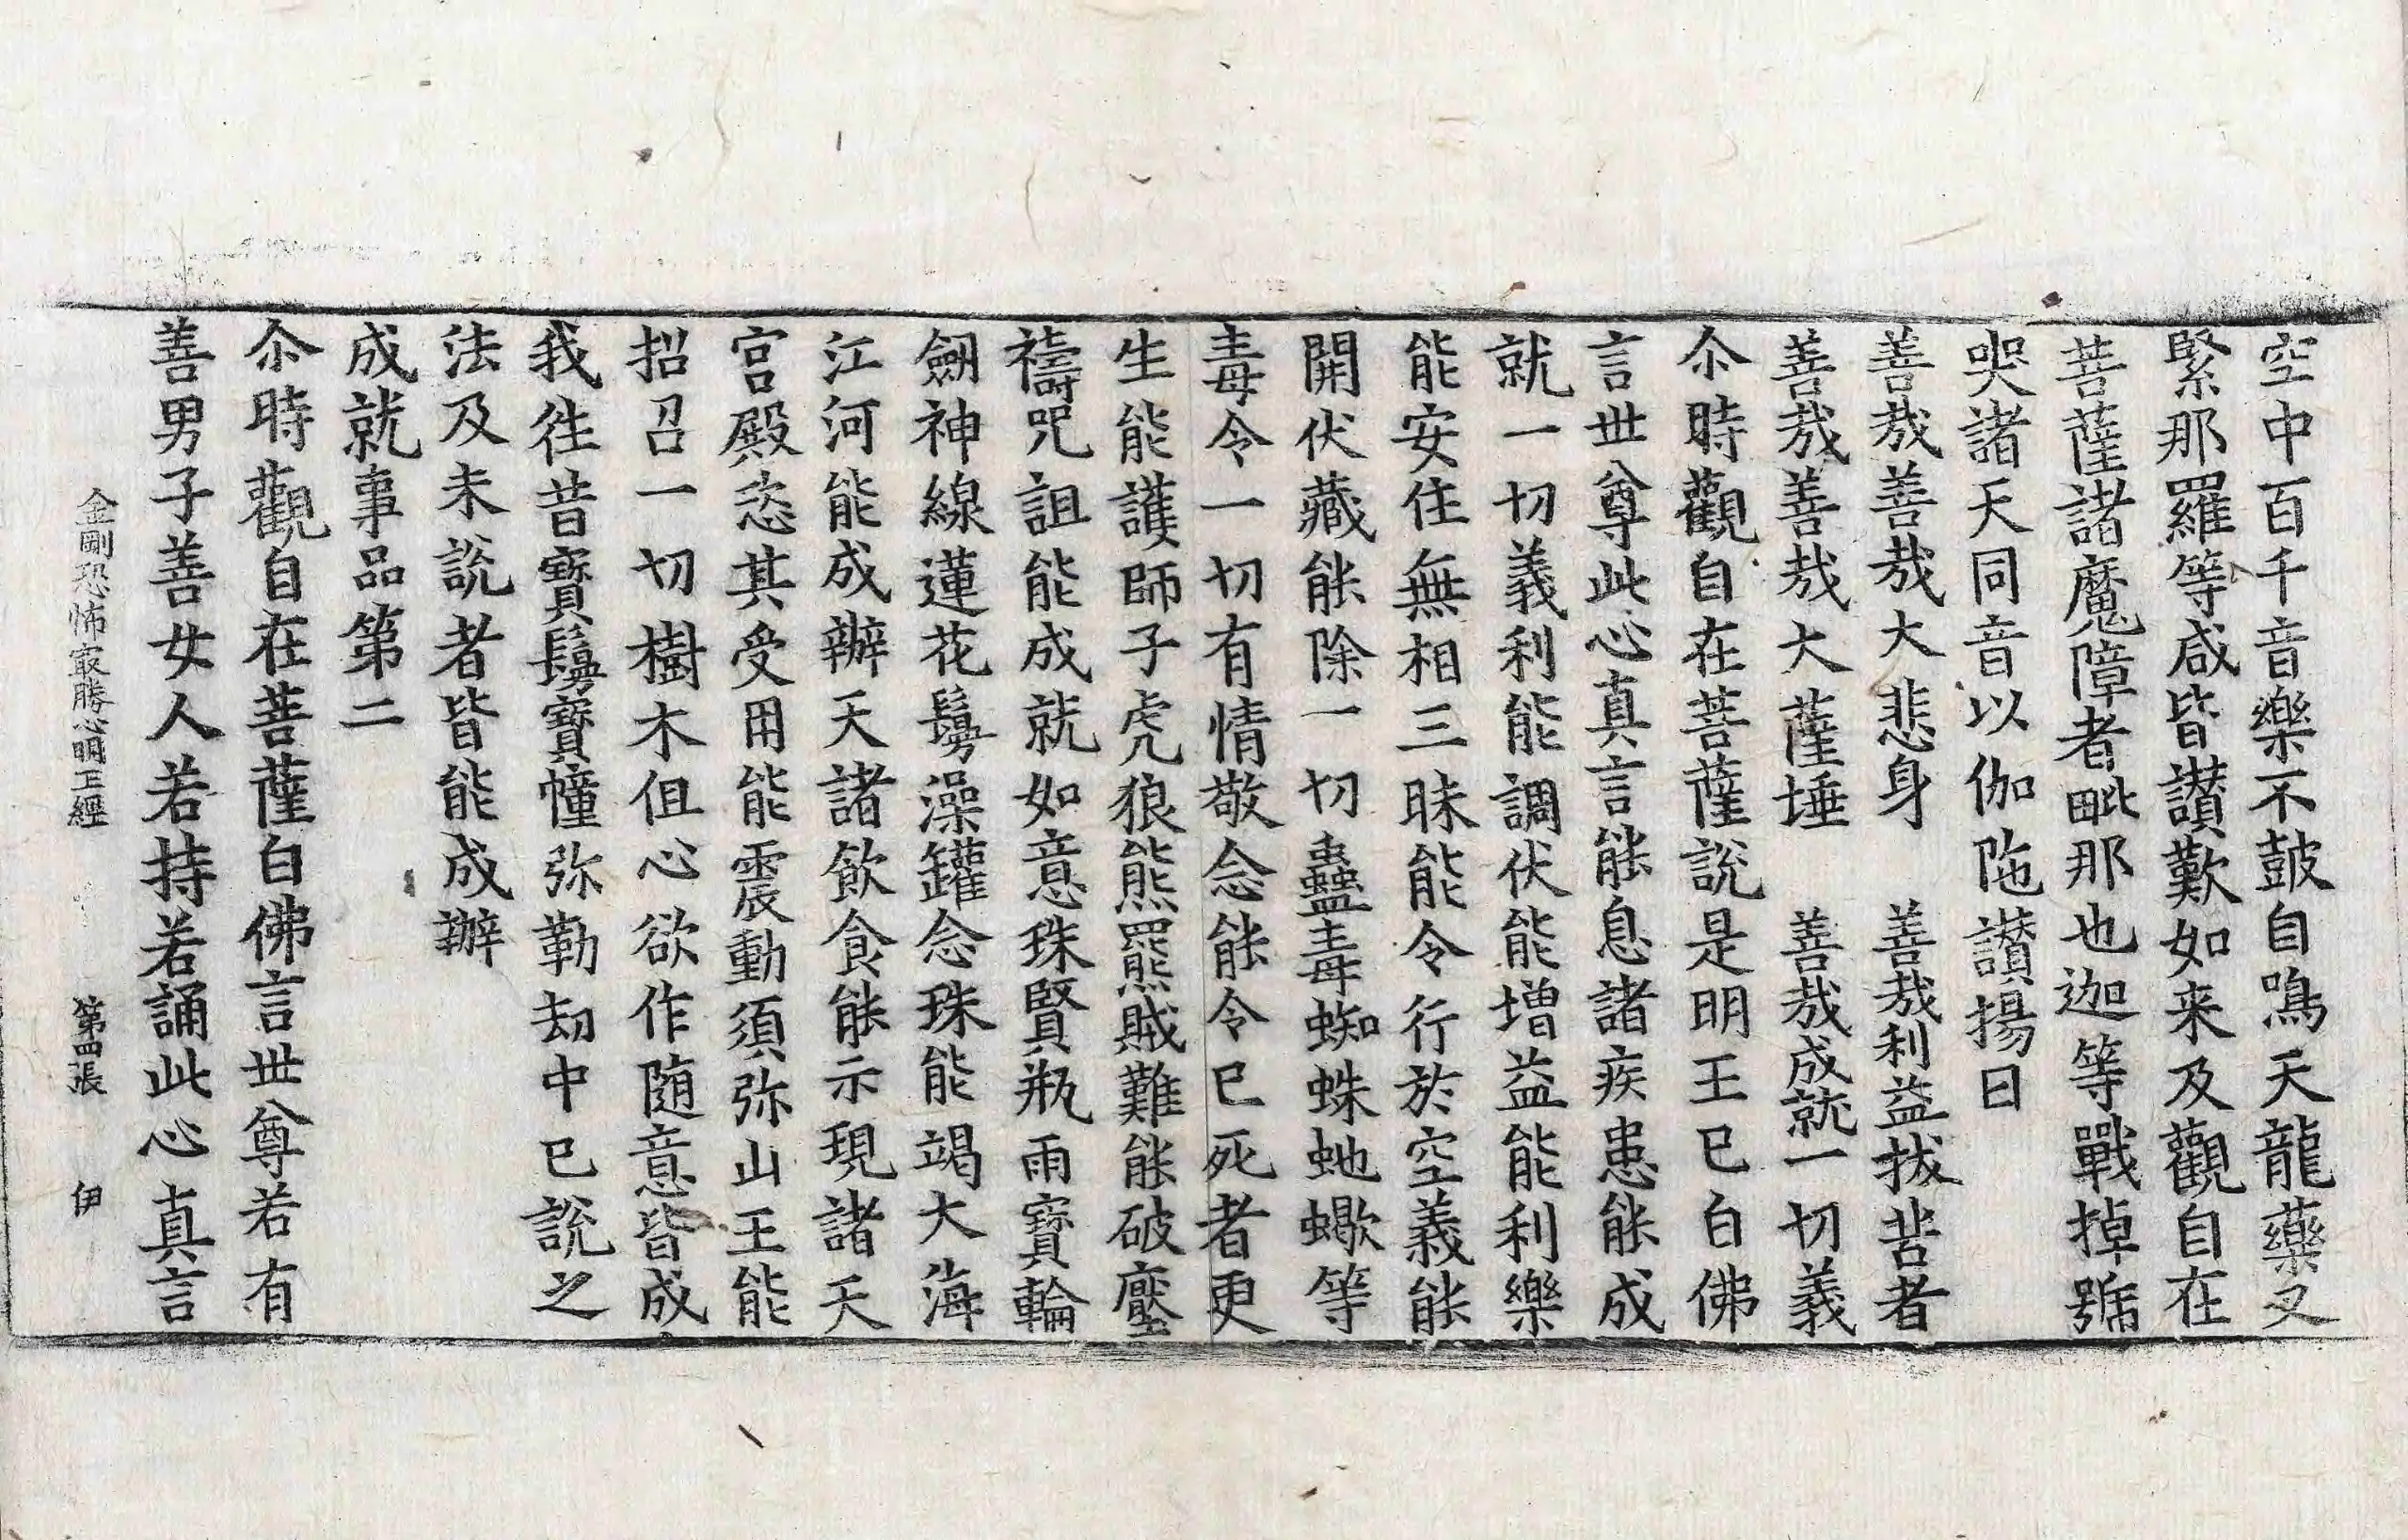 空中百千音樂不鼓自鳴天龍藥叉
緊那羅等咸皆讃歎如来及觀自在
菩薩諸魔障者毗那也迦等戰掉號
哭諸天同音以伽陁讃揚曰
善哉善哉大悲身　善哉利益拔苦者
善哉善哉大薩埵　善哉成就一切義
尒時觀自在菩薩說是明王已白佛
言世尊此心真言能息諸疾患能成
就一切義利能調伏能增益能利樂
能安住無相三昧能令行於空義能
開伏藏能除一切蠱毒蜘蛛虵蠍等
毒令一切有情敬念能令已死者更
生能護師子虎狼熊羆賊難能破壓
禱呪詛能成就如意珠賢瓶雨寶輪
劒神線蓮花鬘澡罐念珠能竭大海
江河能成辦天諸飲食能示現諸天
宮殿恣其受用能震動須弥山王能
招召一切樹木但心欲作随意皆成
我徃昔寶鬘寶幢弥勒刼中已說之
法及未說者皆能成辦
成就事品第二
尒時觀自在菩薩白佛言世尊若有
善男子善女人若持若誦此心真言
金剛恐怖冣勝心明王經　第四張　伊